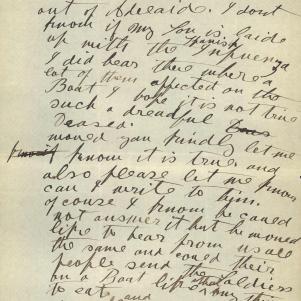 out of Adelaid. I dont
know if my Son is laide
up with the Spanish Influenza
I did hear there where a
lot of them affected on the
Boat I hope it is not true
such a dreadful
Deased.
would you kindly let me
know it is true and
also please let me know
can I write to him.
of course I know he could
not answer it but he would
life to hear from us all
the same and could their
people send the Soldiers
on a Boat
to eat and